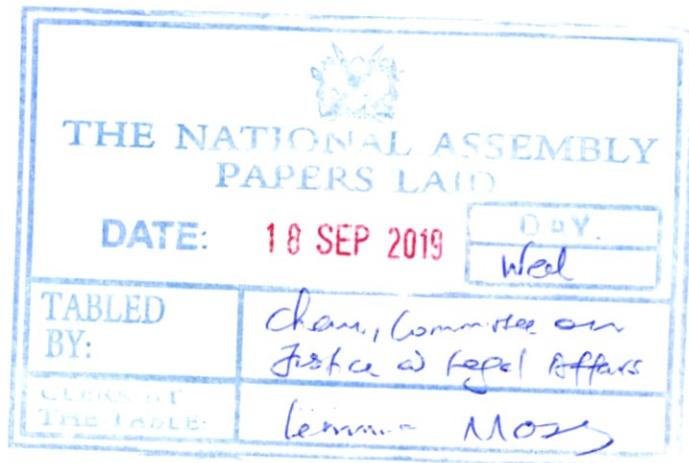 THE NATIONAL ASSEMBLY
PAPERS LAID
DATE: 18 SEP 2019
DAY.
Wed
TABLED
BY:
Chair, Committee on
Justice & Legal Affairs
CLERK AT
THE TABLE: